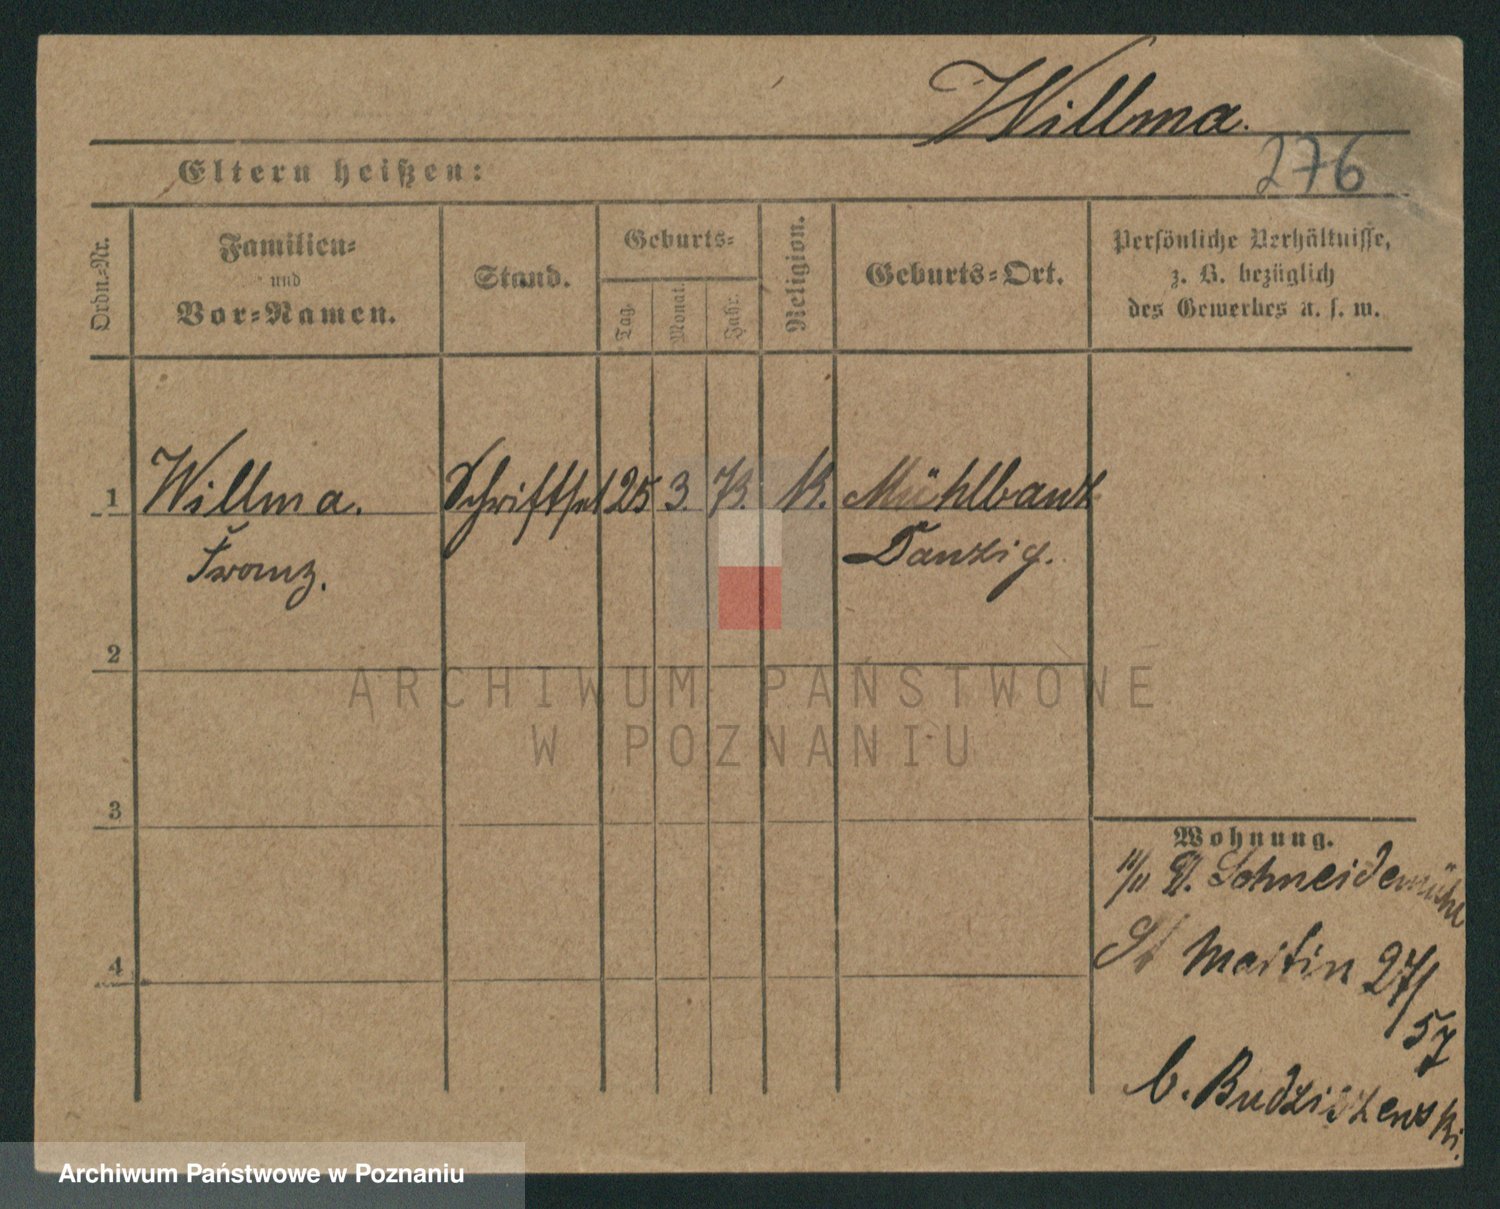 Willma.
276
Eltern heißen:
Ordn.-Nr.
Familien-
und
Vor-Namen.
Stand.
Geburts-
Tag.
Monat.
Jahr.
Religion.
Geburts-Ort.
Persönliche Verhältnisse,
z. B. bezüglich
des Gewerbes u. s. w.
1 Willma. Schriftset 25 3. 73. K. Mühlbanz
Franz. Danzig.
2
ARCHIWUM PAŃSTWOWE
W POZNANIU
3
Wohnung.
11/11 Schneidemühl
4
St Martin 27/
57
b. Budziszewski.
Archiwum Państwowe w Poznaniu